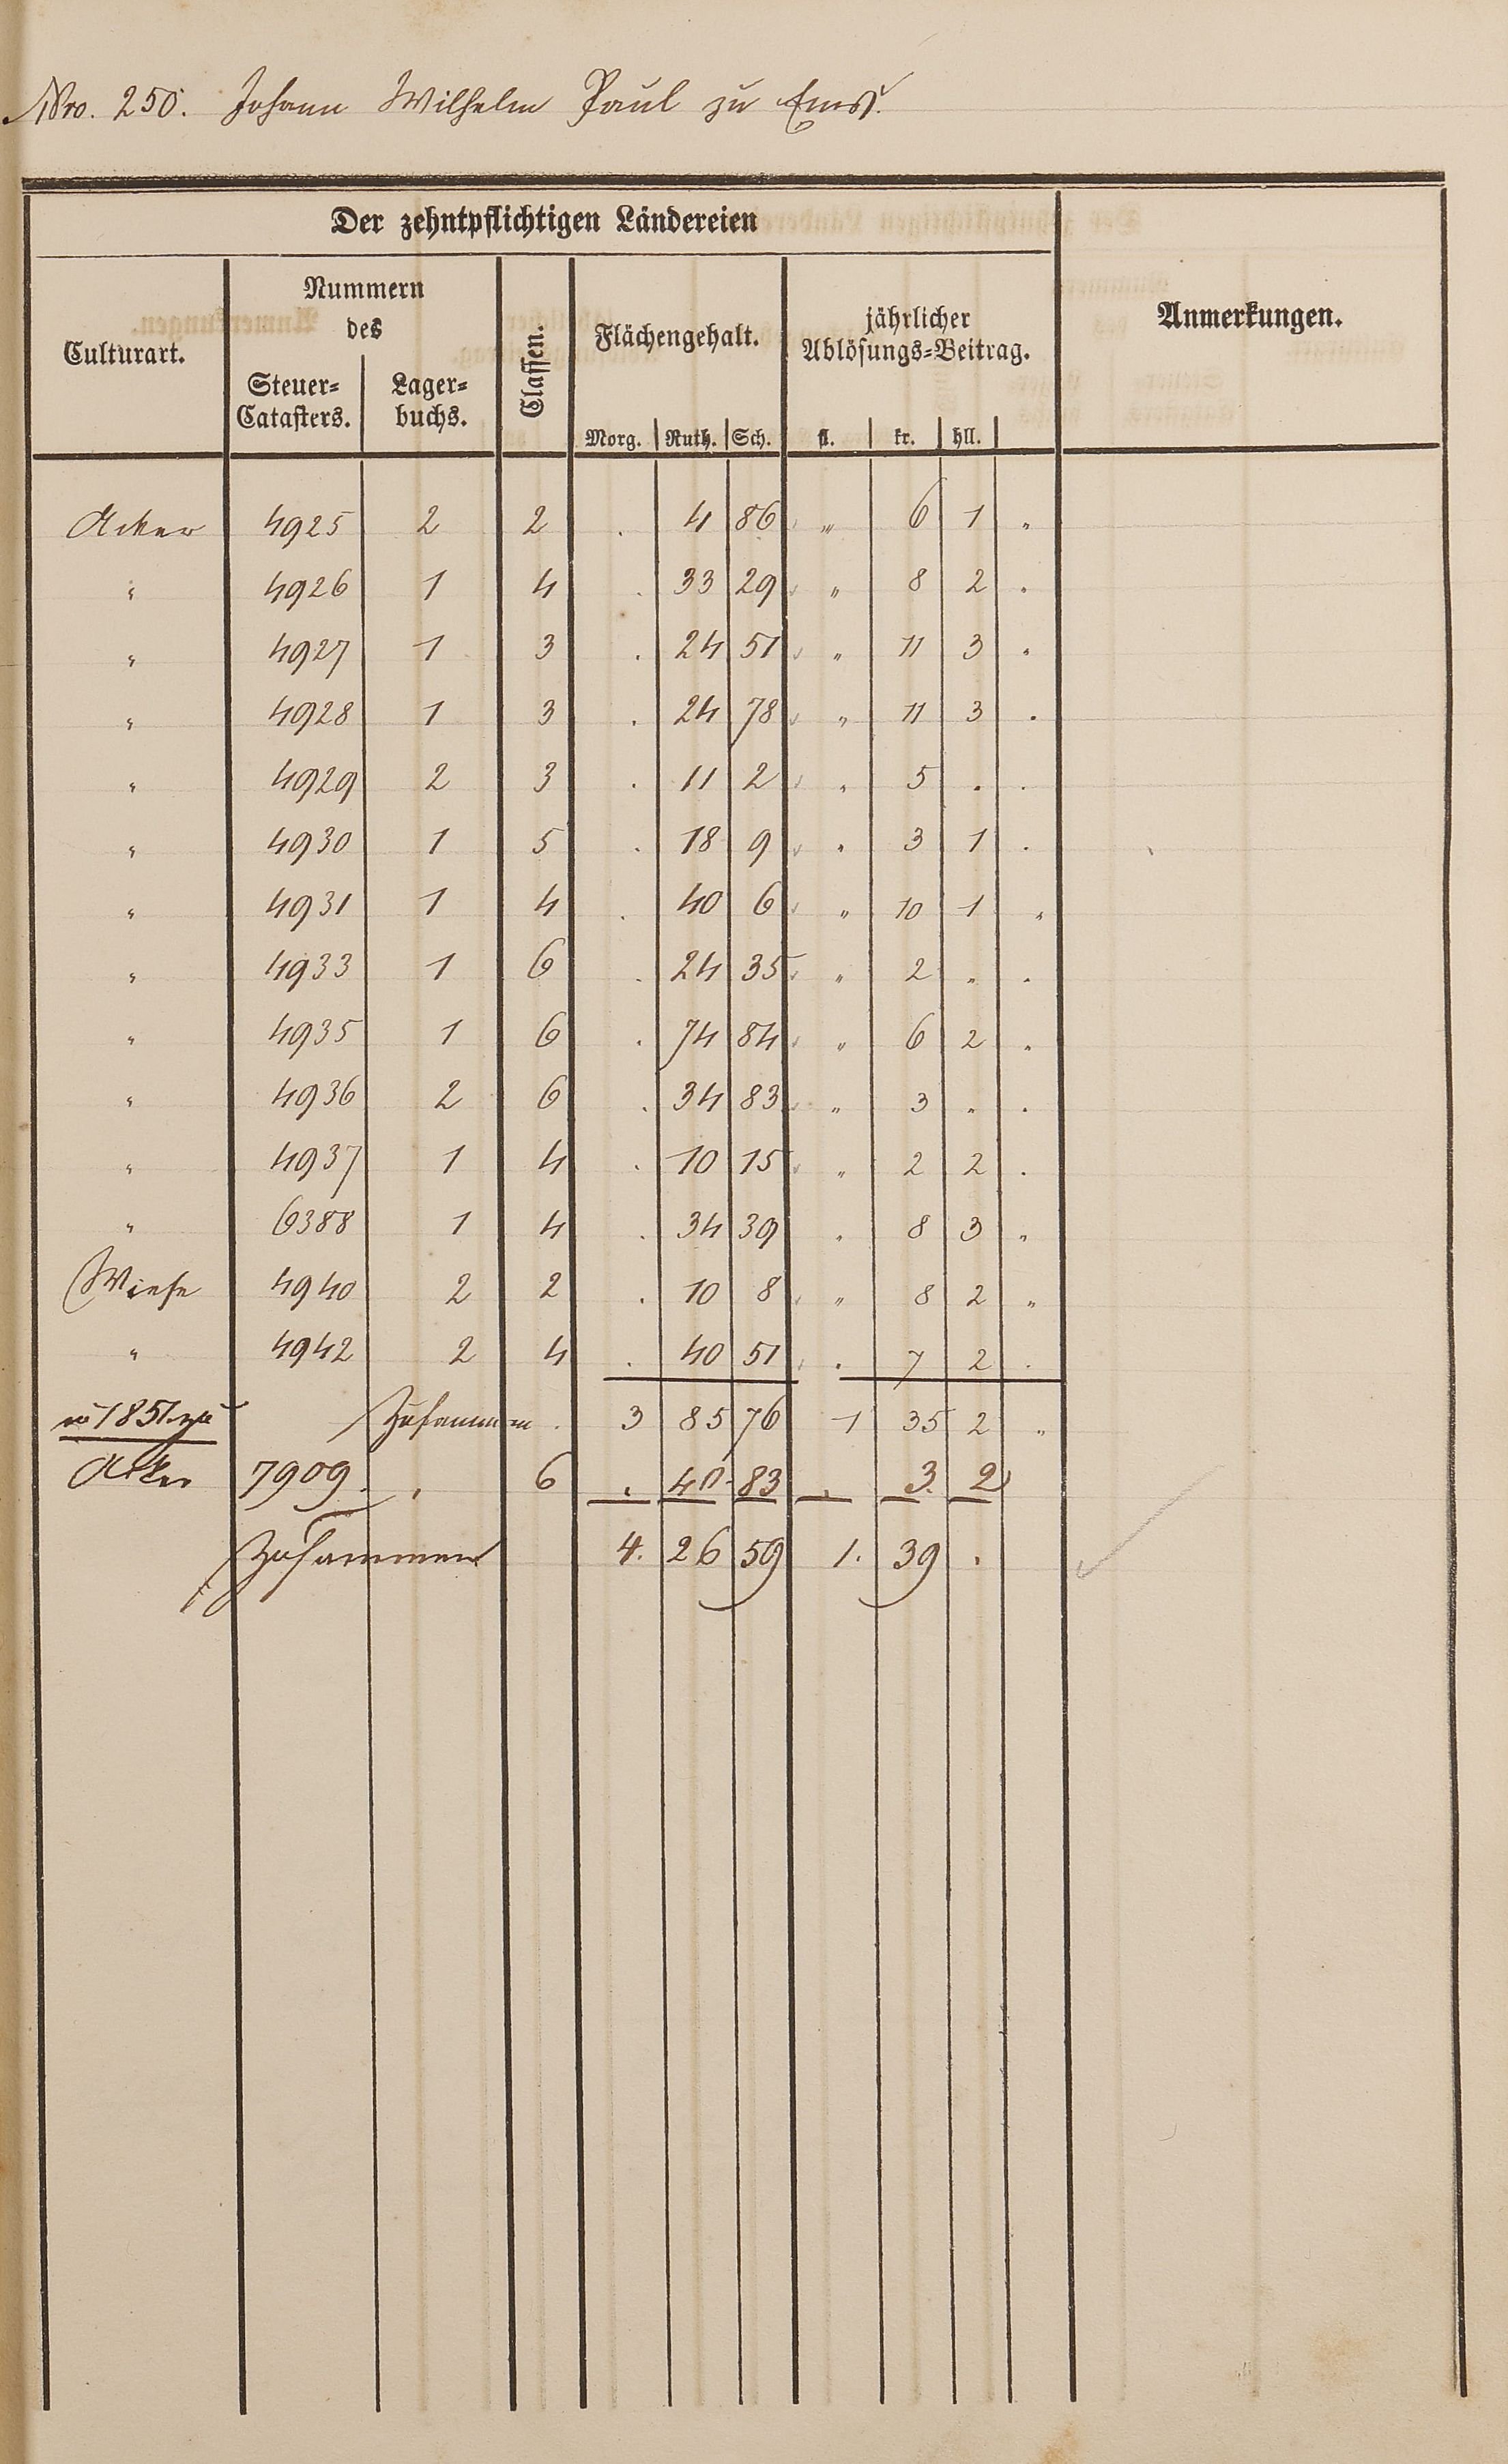 Nro. 250. Johann Wilhelm Paul zu Ems.
Der zehntpflichtigen Ländereien
Culturart.
Nummern
des
Steuer=
Catasters.
Lager=
buchs.
Classen.
Flächengehalt.
Morg. Ruth. Sch.
jährlicher
Ablösungs=Beitrag.
fl. kr. hll.
Anmerkungen.
Acker 4925 2 2 . 4 86 „ 6 1 „
„ 4926 1 4 . 33 29 „ 8 2 .
„ 4927 1 3 . 24 51 „ 11 3 „
„ 4928 1 3 . 24 78 „ 11 3 .
„ 4929 2 3 . 11 2 „ 5 . .
„ 4930 1 5 . 18 9 „ 3 1 .
„ 4931 1 4 . 40 6 „ 10 1 „
„ 4933 1 6 . 24 35 „ 2 „ .
„ 4935 1 6 . 74 84 „ 6 2 „
„ 4936 2 6 . 34 83 „ 3 „ .
„ 4937 1 4 . 10 15 „ 2 2 .
„ 6388 1 4 . 34 39 „ 8 3 „
Wiese 4940 2 2 . 10 8 „ 8 2 „
„ 4942 2 4 . 40 51 . 7 2 .
1851. Zusammen . 3 85 76 1 35 2 „
Acker 7909. . 6 . 40. 83 . 3. 2
Zusammen 4. 26 59 1. 39 .